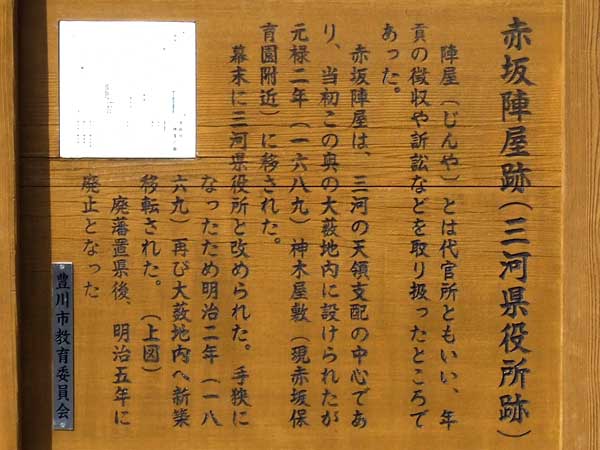 赤坂陣屋跡(三河県役所跡)
陣屋(じんや)とは代官所ともいい、年
貢の徴収や訴訟などを取り扱ったところで
あった。
赤坂陣屋は、三河の天領支配の中心であ
り、当初この奥の大薮地内に設けられたが
元禄二年(一六八九)神木屋敷(現赤坂保
育園附近)に移された。
幕末に三河県役所と改められた。手狭に
なったため明治二年(一八
六九)再び大薮地内へ新築
移転された。(上図)
廃藩置県後、明治五年に
廃止となった
豊川市教育委員会